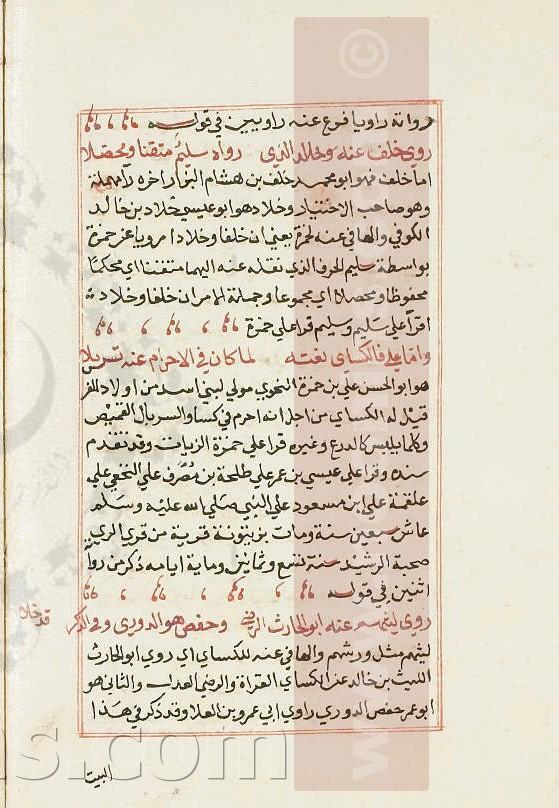 رواته راويا فرع عنه راويين في قوله
روي خلف عنه وخلاد الذي رواه سليم متقنا ومحصلا
اما خلف فهو ابو محمد خلف بن هشام البزار اخره را مهملة
وهو صاحب الاختيار وخلاد هو ابو عيسي خلاد بن خالد
الكوفي والها في عنه لحمزة يعني ان خلفا وخلادا رويا عن حمزة
بواسطة سليم الحرف الذي نقله عنه اليهما متقنا اي محكما
محفوظا ومحصلا اي مجموعا وجملة الامر ان خلفا وخلادا
اقرا علي سليم وسليم قرا علي حمزة
واما علي فالكساي نعته لما كان في الاحرام عنه تسربلا
هو ابو الحسن علي بن حمزة النحوي مولي لبني اسد من اولاد الفر
قيل له الكساي من اجل انه احرم في كسا والسربال القميص
وكلما يلبس كالدرع وغيره قرا علي حمزة الزيات وقد تقدم
سنده وقرا علي عيسي بن عمر علي طلحة بن مصرف علي النخعي علي
علقمة علي ابن مسعود علي النبي صلي الله عليه وسلم
عاش سبعين سنة ومات برنبوية قرية من قري الري
صحبة الرشيد سنة تسع وثمانين وماية ايامه ذكر من رواة
اثنين في قوله
روي ليثهم عنه ابو الحارث الرضي وحفص هو الدوري وفي الذكر
قد خلا
ليثهم مثل ورشهم والها في عنه للكساي اي روي ابو الحارث
الليث بن خالد عن الكساي القراة والرضي العدل والثاني هو
ابو عمر حفص الدوري راوي ابي عمرو بن العلا وقد ذكر في هذا
البيت
s.com
www.